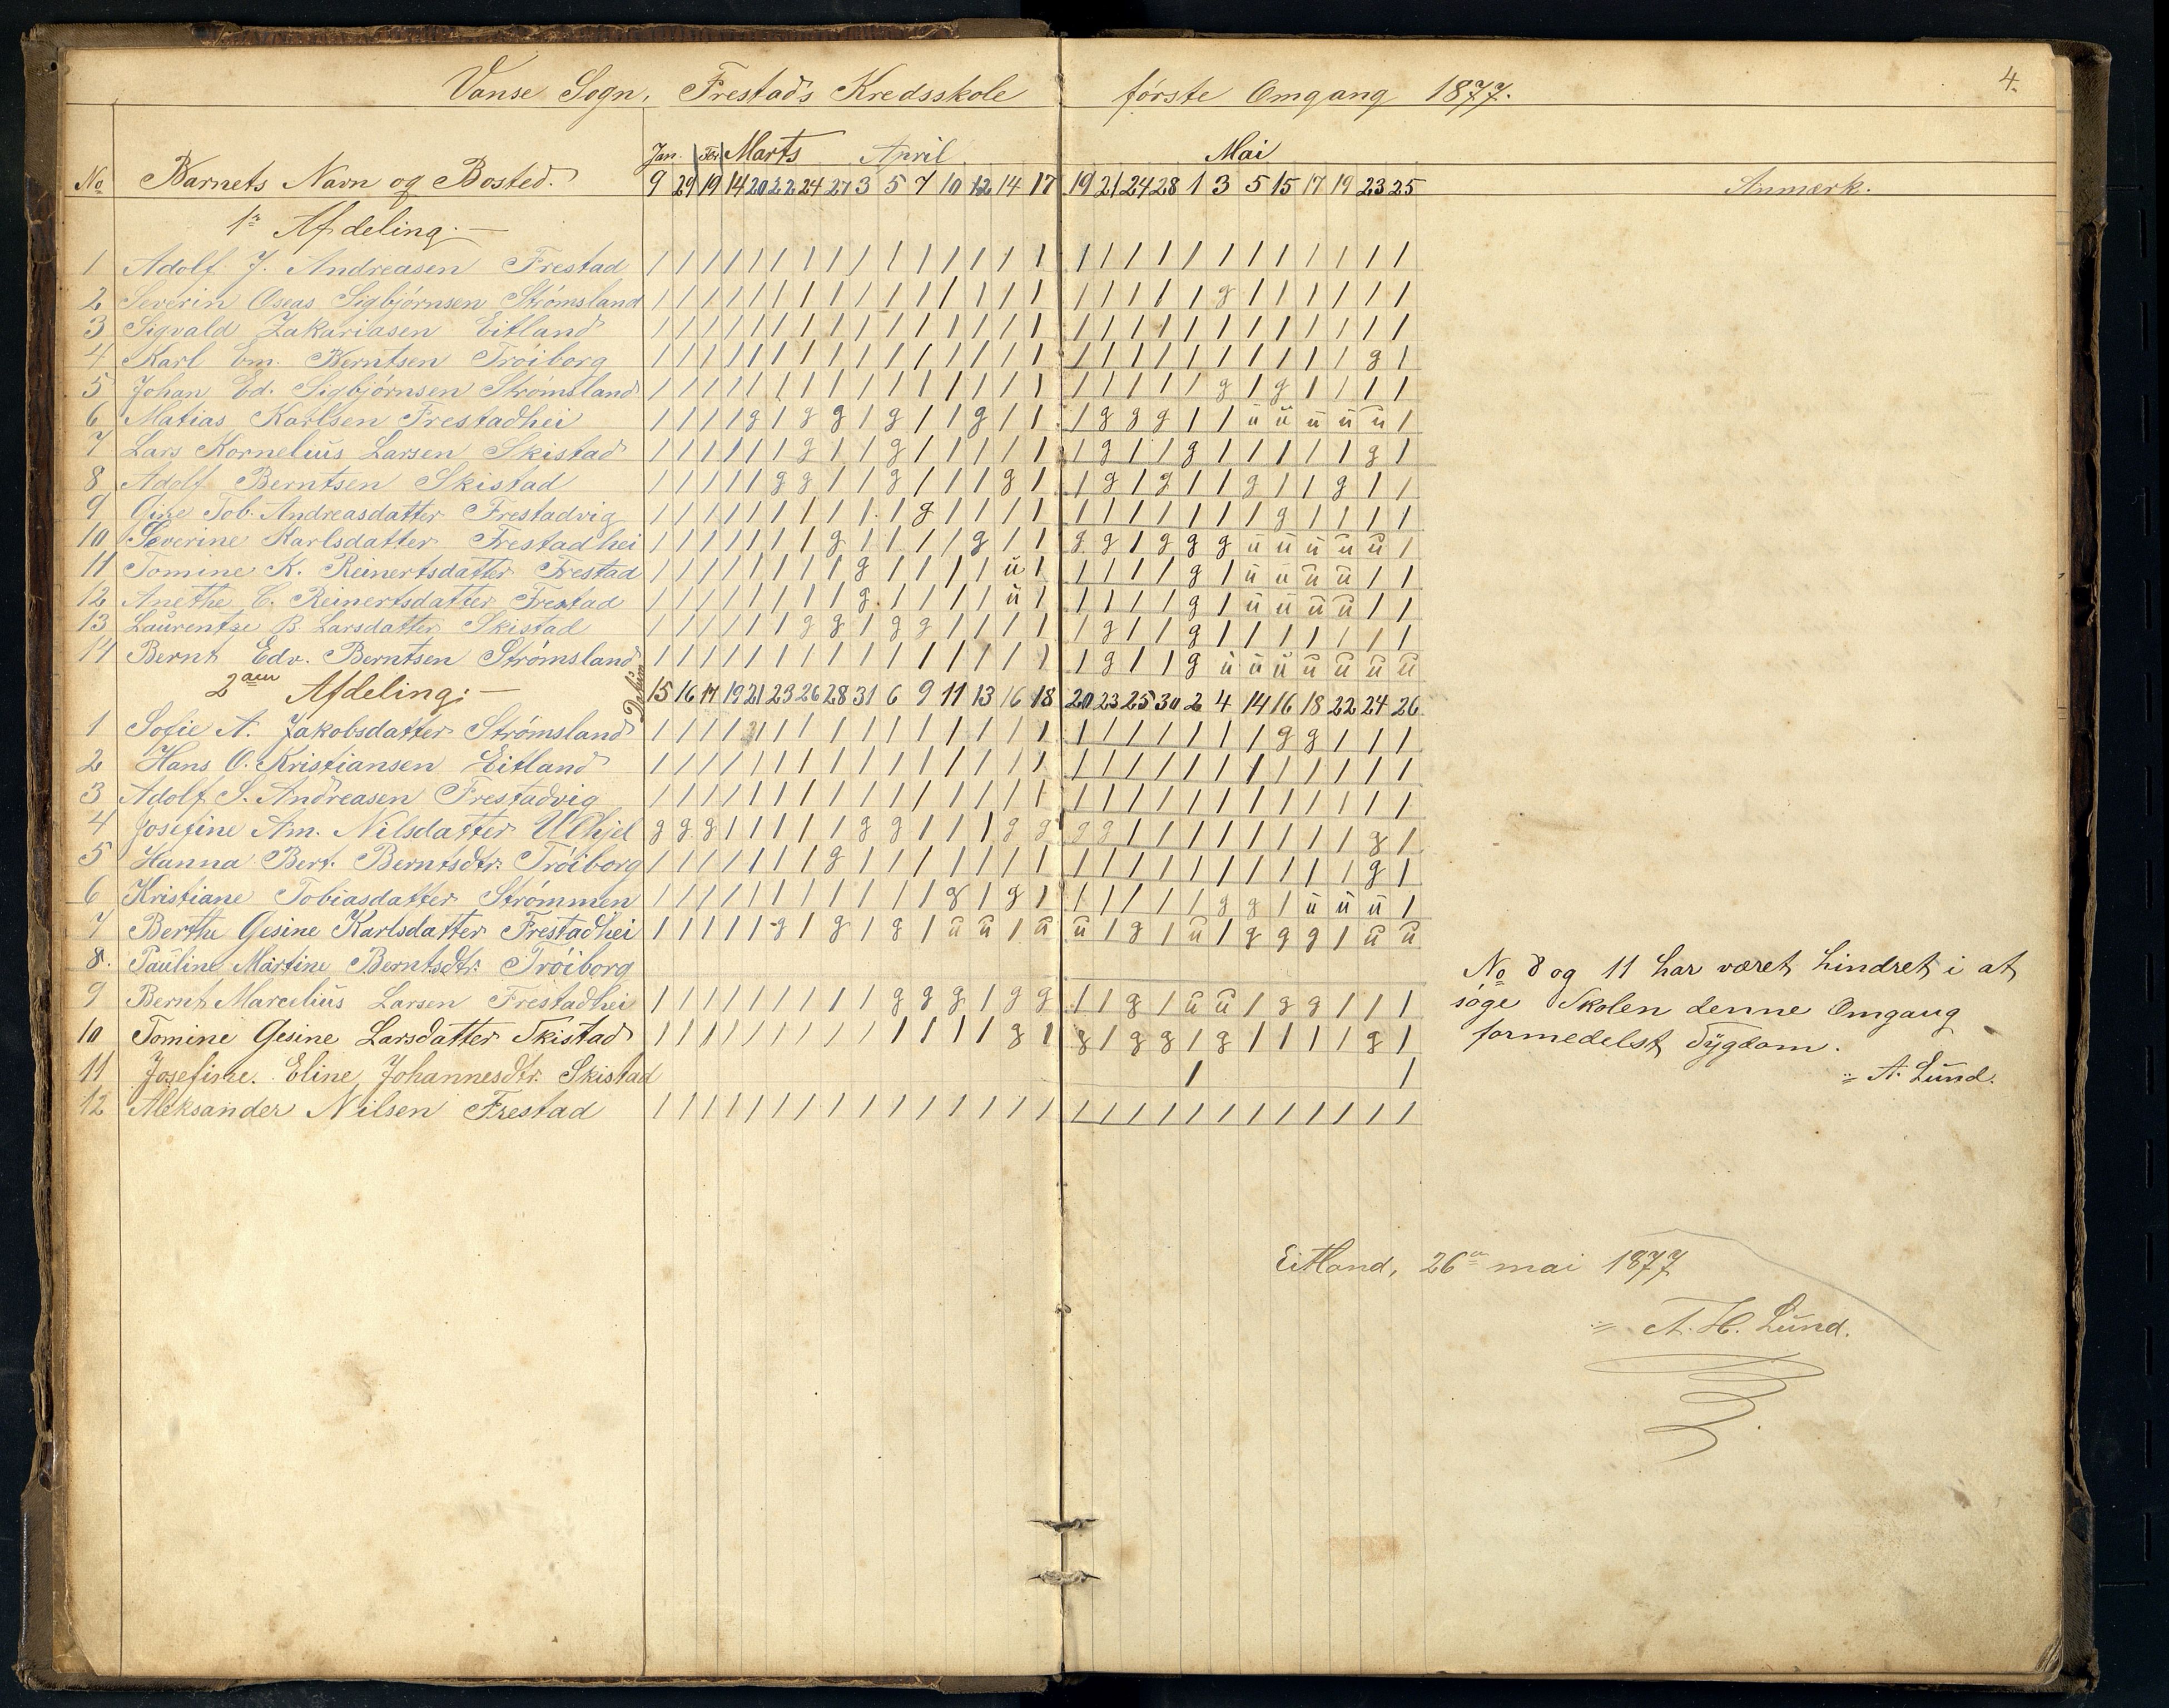 Vanse Sogn. Frestad's Kredsskole første Omgang 1877. 4.
Jan. Feb Marts April Mai
No. Barnets Navn og Bosted. 9 29 19 14 20 22 24 27 3 5 7 10 12 14 17 19 21 24 28 1 3 5 15 17 19 23 25 Anmærk.
1ste Afdeling.—
1 Adolf J. Andreasen Frestad / / / / / / / / / / / / / / / / / / / / / / / / / / /
2 Severin Oseas Sigbjørnsen Strømsland / / / / / / / / / / / / / / / / / / / / g / / / / / /
3 Sigvald Zakariasen Eitland / / / / / / / / / / / / / / / / / / / / / / / / / / /
4 Karl Em. Berntsen Trøiborg / / / / / / / / / / / / / / / / / / / / / / / / / g /
5 Johan Ed. Sigbjørnsen Strømsland / / / / / / / / / / / / / / / / / / / / g / g / / / /
6 Matias Karlsen Frestadhei / / / / g / g g / g / / g / / / g g g / / ŭ ŭ ŭ ŭ ŭ /
7 Lars Kornelius Larsen Skistad / / / / / / g / / g / / / / / / g / / g / / / / / g /
8 Adolf Berntsen Skistad / / / / / g g / / g / / / g / / g / g / / g / / g / /
9 Gine Tob. Andreasdatter Frestadvig / / / / / / / / / / g / / / / / / / / / / / g / / / /
10 Severine Karlsdatter Frestadhei / / / / / / / g / / / / g / / g g / g g g ŭ ŭ ŭ ŭ ŭ /
11 Tomine K. Reinertsdatter Frestad / / / / / / / / g / / / / ŭ / / / / / g / ŭ ŭ ŭ ŭ / /
12 Anethe C. Reinertsdatter Frestad / / / / / / / / g / / / / ŭ / / / / / g / ŭ ŭ ŭ ŭ / /
13 Laurentze B. Larsdatter Skistad / / / / / / g g / g g / / / / / g / / g / / / / / / /
14 Bernt Edv. Berntsen Strømsland / / / / / / / / / / / / / / / / g / / g ŭ ŭ ŭ ŭ ŭ ŭ ŭ
2den Afdeling:— Datum 15 16 17 19 21 23 26 28 31 6 9 11 13 16 18 20 23 25 30 2 4 14 16 18 22 24 26
1 Sofie A. Jakobsdatter Strømsland / / / / / / / / / / / / / / / / / / / / / / g g / / /
2 Hans O. Kristiansen Eitland / / / / / / / / / / / / / / / / / / / / / / / / / / /
3 Adolf S. Andreasen Frestadvig / / / / / / / / / / / / / / / / / / / / / / / / / / /
4 Josefine Am. Nilsdatter Ulhjel g g g / / / / / g g / / / g g g g / / / / / / / / g /
5 Hanna Bert. Berntsdtr. Trøiborg / / / / / / / g / / / / / / / / / / / / / / / / / g /
6 Kristiane Tobiasdatter Strømmen / / / / / / / / / / / g / g / / / / / / g g / ŭ ŭ ŭ /
7 Berthe Gesine Karlsdatter Frestadhei / / / / / g / g / g / ŭ ŭ / ŭ ŭ / g / ŭ / g g g / ŭ ŭ
8. Pauline Martine Berntsdtr. Trøiborg
9 Bernt Marcelius Larsen Frestadhei / / / / / / / / / g g g / g g / / g / ŭ ŭ / g g / / /
10 Tomine Gesine Larsdatter Skistad / / / / / / / / / / / / / g / g / g g / g / / / / g /
11 Josefine Eline Johannesdtr. Skistad / /
12 Aleksander Nilsen Frestad / / / / / / / / / / / / / / / / / / / / / / / / / / /
No 8 og 11 har været hindret i at
søge Skolen denne Omgang
formedelst Sygdom.
A. Lund.
Eitland, 26de mai 1877
A. H. Lund.